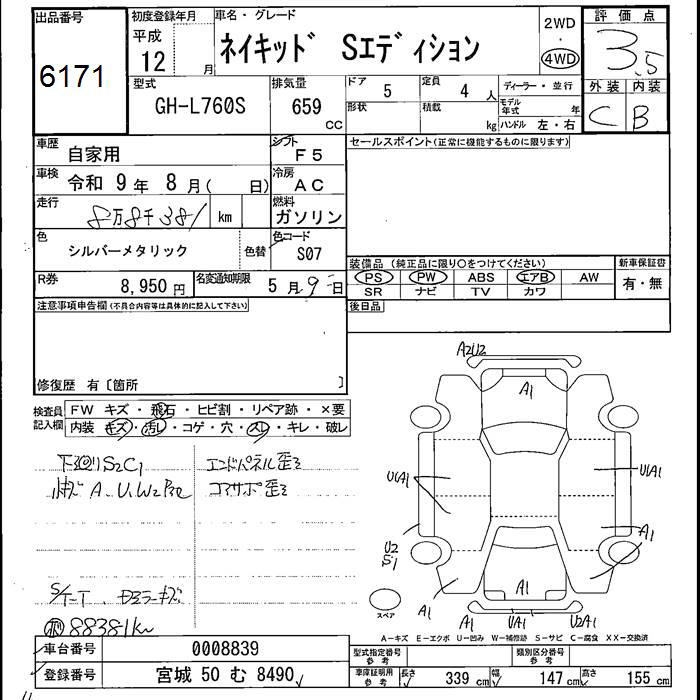 出品番号
6171
初度登録年月
平成
12 月
車名・グレード
ネイキッド Sエディション
2WD
・
4WD
評価点
3.5
外装 内装
C B
型式
GH-L760S
排気量
659
cc
ドア 5
形状
定員 4 人
積載 kg
ディーラー・並行
モデル年式 年
ハンドル 左・右
車歴 自家用
シフト F5
車検 令和 9年 8月( 日)
冷房 AC
走行 8万8千381 km
燃料 ガソリン
色 シルバーメタリック
色替
色コード S07
R券 8,950円
名変通知期限 5月9日
セールスポイント(正常に機能するものに限ります)
装備品(純正品に限り○をつけてください)
PS PW ABS エアB AW
SR ナビ TV カワ
新車保証書
有・無
後日品
注意事項申告欄(不具合内容等は具体的に記入して下さい)
修復歴 有〔箇所 〕
検査員記入欄
FW キズ・飛石・ヒビ割・リペア跡・×要
内装 キズ・汚レ・コゲ・穴・スレ・キレ・破レ
下回りS2C1
エンドパネル歪ミ
コアサポ歪ミ
88381km
A2U2
A1
A1
U1A1
U1A1
A1
U2
S1
A1
U1A1
U2A1
スペア
A-キズ E-エクボ U-凹み W-補修跡 S-サビ C-腐食 XX-交換済
車台番号 0008839
登録番号 宮城 50 む 8490
型式指定番号
参考
類別区分番号
参考
車庫証明用
参考
長さ 339 cm
幅 147 cm
高さ 155 cm